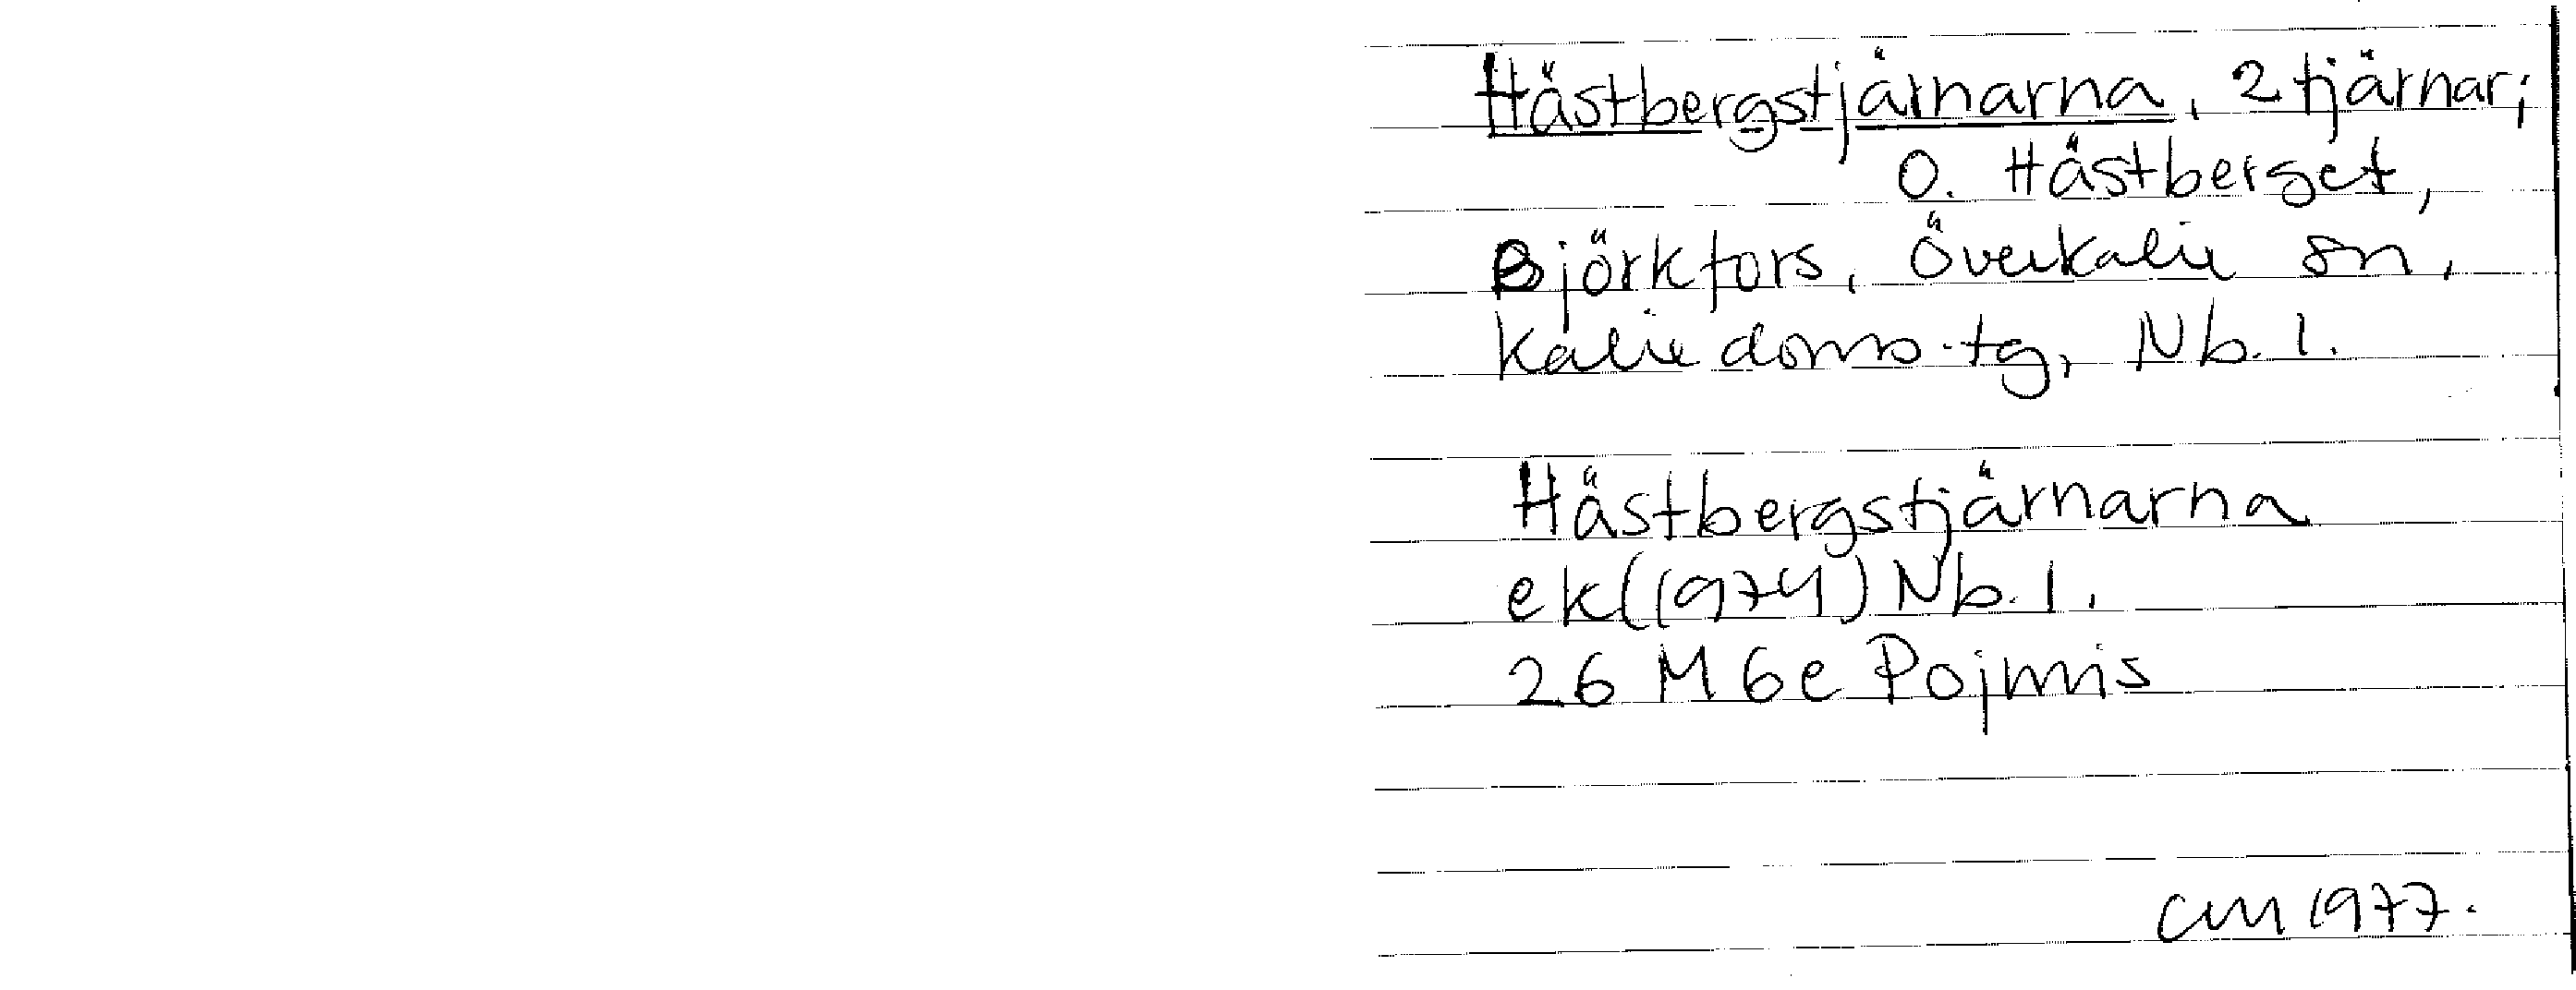 Hästbergstjärnarna, 2 tjärnar;
O. Hästberget,
Björkfors, Överkalix sn,
Kalix doms.tg, Nb. l.
Hästbergstjärnarna
ek (1974) Nb. l.
26 M 6e Pojmis
CM 1977.